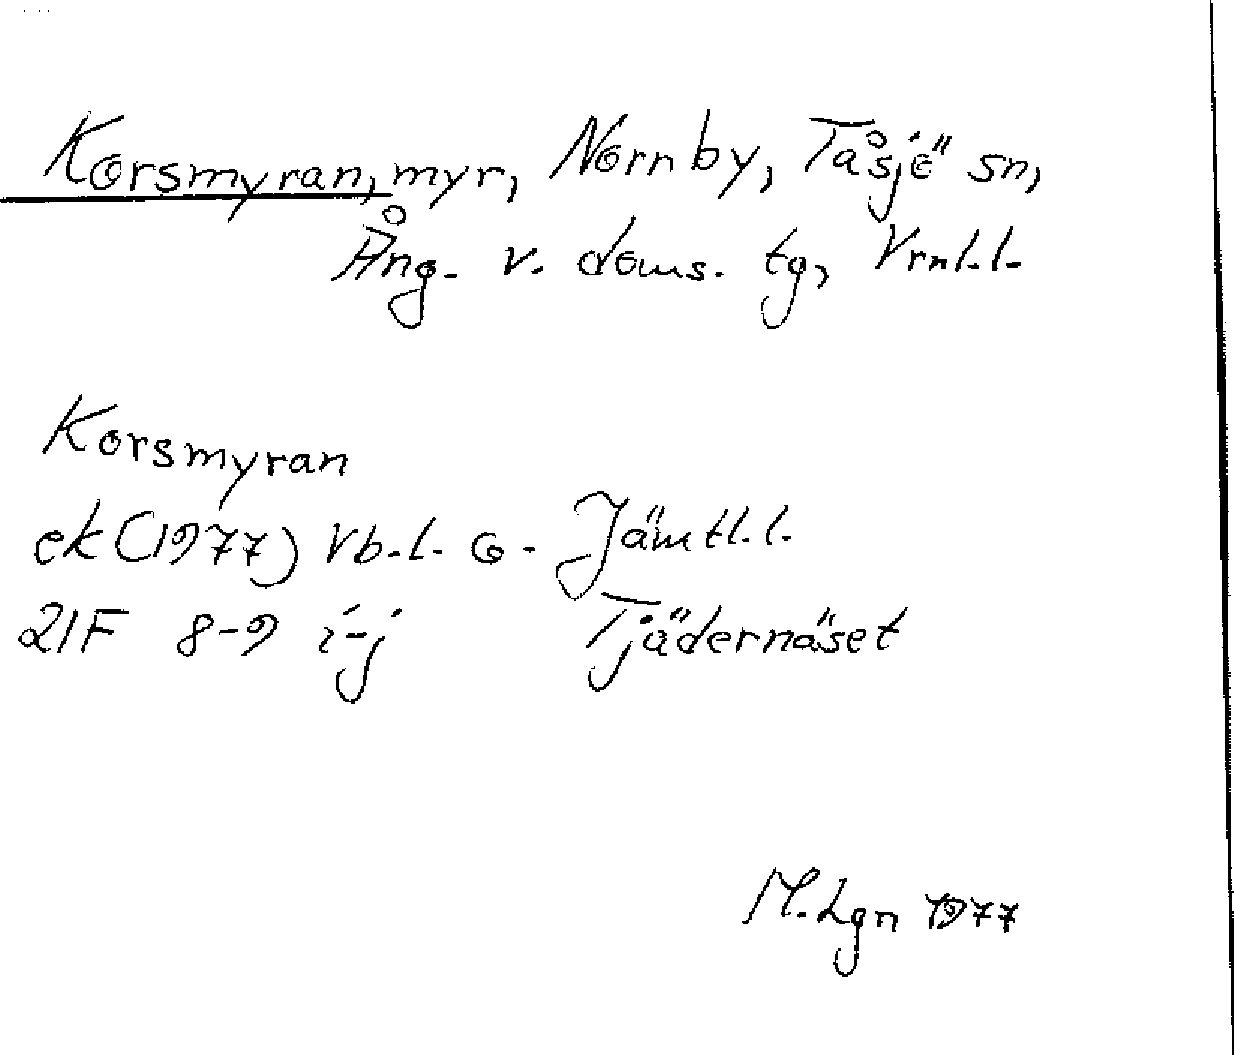 Korsmyran, myr, Norrnby, Tåsjö sn,
Ång. v. doms. tg, Vrnl.l.
Korsmyran
ek (1977) Vb.l. o. Jämtl.l.
21F 8-9 i-j Tjädernäset
M. Lgn 1977